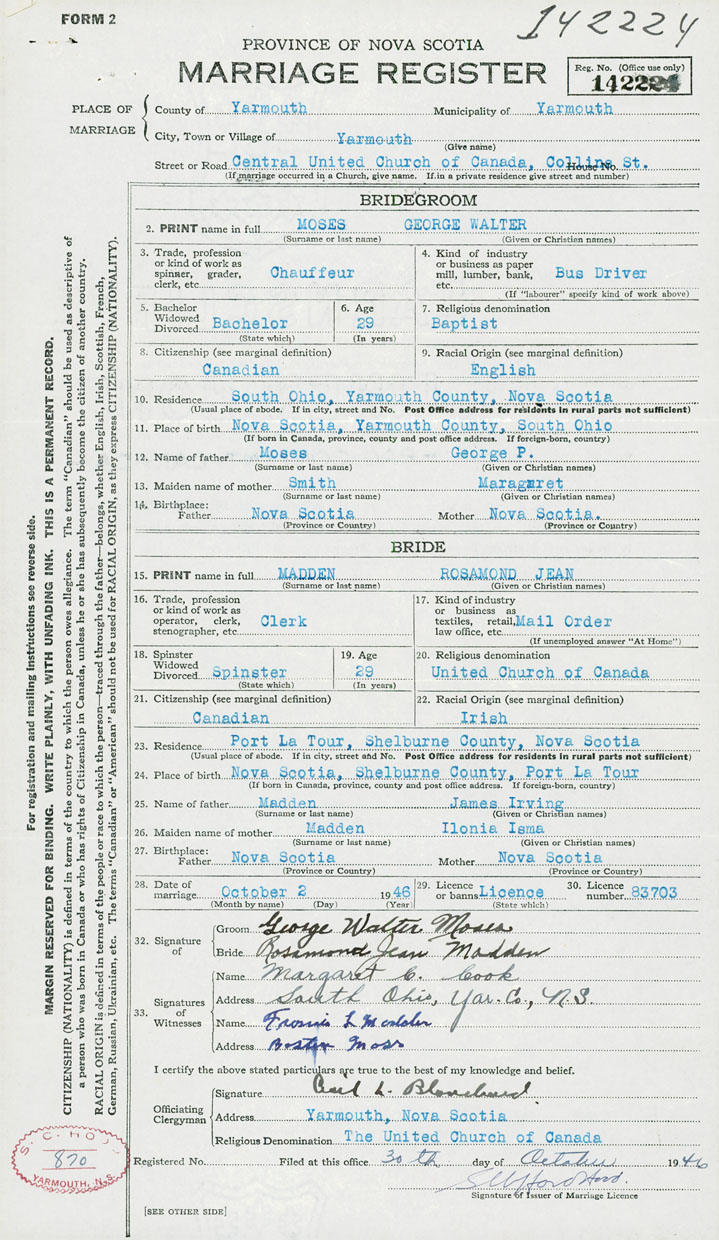 FORM 2
142224
PROVINCE OF NOVA SCOTIA
MARRIAGE REGISTER
Reg. No. (Office use only)
142224
PLACE OF MARRIAGE
County of Yarmouth Municipality of Yarmouth
City, Town or Village of Yarmouth
(Give name)
Street or Road Central United Church of Canada, Collins St.
House No.
(If marriage occurred in a Church, give name. If in a private residence give street and number)
BRIDEGROOM
2. PRINT name in full MOSES GEORGE WALTER
(Surname or last name) (Given or Christian names)
3. Trade, profession or kind of work as spinner, grader, clerk, etc. Chauffeur
4. Kind of industry or business as paper mill, lumber, bank, etc. Bus Driver
(If "labourer" specify kind of work above)
5. Bachelor Widowed Divorced Bachelor
(State which)
6. Age 29
(In years)
7. Religious denomination
Baptist
8. Citizenship (see marginal definition)
Canadian
9. Racial Origin (see marginal definition)
English
10. Residence South Ohio, Yarmouth County, Nova Scotia
(Usual place of abode. If in city, street and No. Post Office address for residents in rural parts not sufficient)
11. Place of birth Nova Scotia, Yarmouth County, South Ohio
(If born in Canada, province, county and post office address. If foreign-born, country)
12. Name of father Moses George P.
(Surname or last name) (Given or Christian names)
13. Maiden name of mother Smith Maragaret
(Surname or last name) (Given or Christian names)
14. Birthplace:
Father Nova Scotia Mother Nova Scotia.
(Province or Country) (Province or Country)
BRIDE
15. PRINT name in full MADDEN ROSAMOND JEAN
(Surname or last name) (Given or Christian names)
16. Trade, profession or kind of work as operator, clerk, stenographer, etc. Clerk
17. Kind of industry or business as textiles, retail, law office, etc. Mail Order
(If unemployed answer "At Home")
18. Spinster Widowed Divorced Spinster
(State which)
19. Age 29
(In years)
20. Religious denomination
United Church of Canada
21. Citizenship (see marginal definition)
Canadian
22. Racial Origin (see marginal definition)
Irish
23. Residence Port La Tour, Shelburne County, Nova Scotia
(Usual place of abode. If in city, street and No. Post Office address for residents in rural parts not sufficient)
24. Place of birth Nova Scotia, Shelburne County, Port La Tour
(If born in Canada, province, county and post office address. If foreign-born, country)
25. Name of father Madden James Irving
(Surname or last name) (Given or Christian names)
26. Maiden name of mother Madden Ilonia Isma
(Surname or last name) (Given or Christian names)
27. Birthplace:
Father Nova Scotia Mother Nova Scotia
(Province or Country) (Province or Country)
28. Date of marriage October 2 1946
(Month by name) (Day) (Year)
29. Licence or banns Licence
(State which)
30. Licence number 83703
32. Signature of
Groom George Walter Moses
Bride Rosamond Jean Madden
33. Signatures of Witnesses
Name Margaret C. Cook
Address South Ohio, Yar. Co., N.S.
Name L Madden
Address Boston Mass
I certify the above stated particulars are true to the best of my knowledge and belief.
Officiating Clergyman
Signature Cecil L. Blanchard
Address Yarmouth, Nova Scotia
Religious Denomination The United Church of Canada
Registered No. Filed at this office 30th day of October 1946
Signature of Issuer of Marriage Licence
[SEE OTHER SIDE]
S. C. HOOD
870
YARMOUTH, N.S.
For registration and mailing instructions see reverse side.
MARGIN RESERVED FOR BINDING. WRITE PLAINLY, WITH UNFADING INK. THIS IS A PERMANENT RECORD.
CITIZENSHIP (NATIONALITY) is defined in terms of the country to which the person owes allegiance. The term "Canadian" should be used as descriptive of
a person who was born in Canada or who has rights of Citizenship in Canada, unless he or she has subsequently become the citizen of another country.
RACIAL ORIGIN is defined in terms of the people or race to which the person—traced through the father—belongs, whether English, Irish, Scottish, French,
German, Russian, Ukrainian, etc. The terms "Canadian" or "American" should not be used for RACIAL ORIGIN, as they express CITIZENSHIP (NATIONALITY).